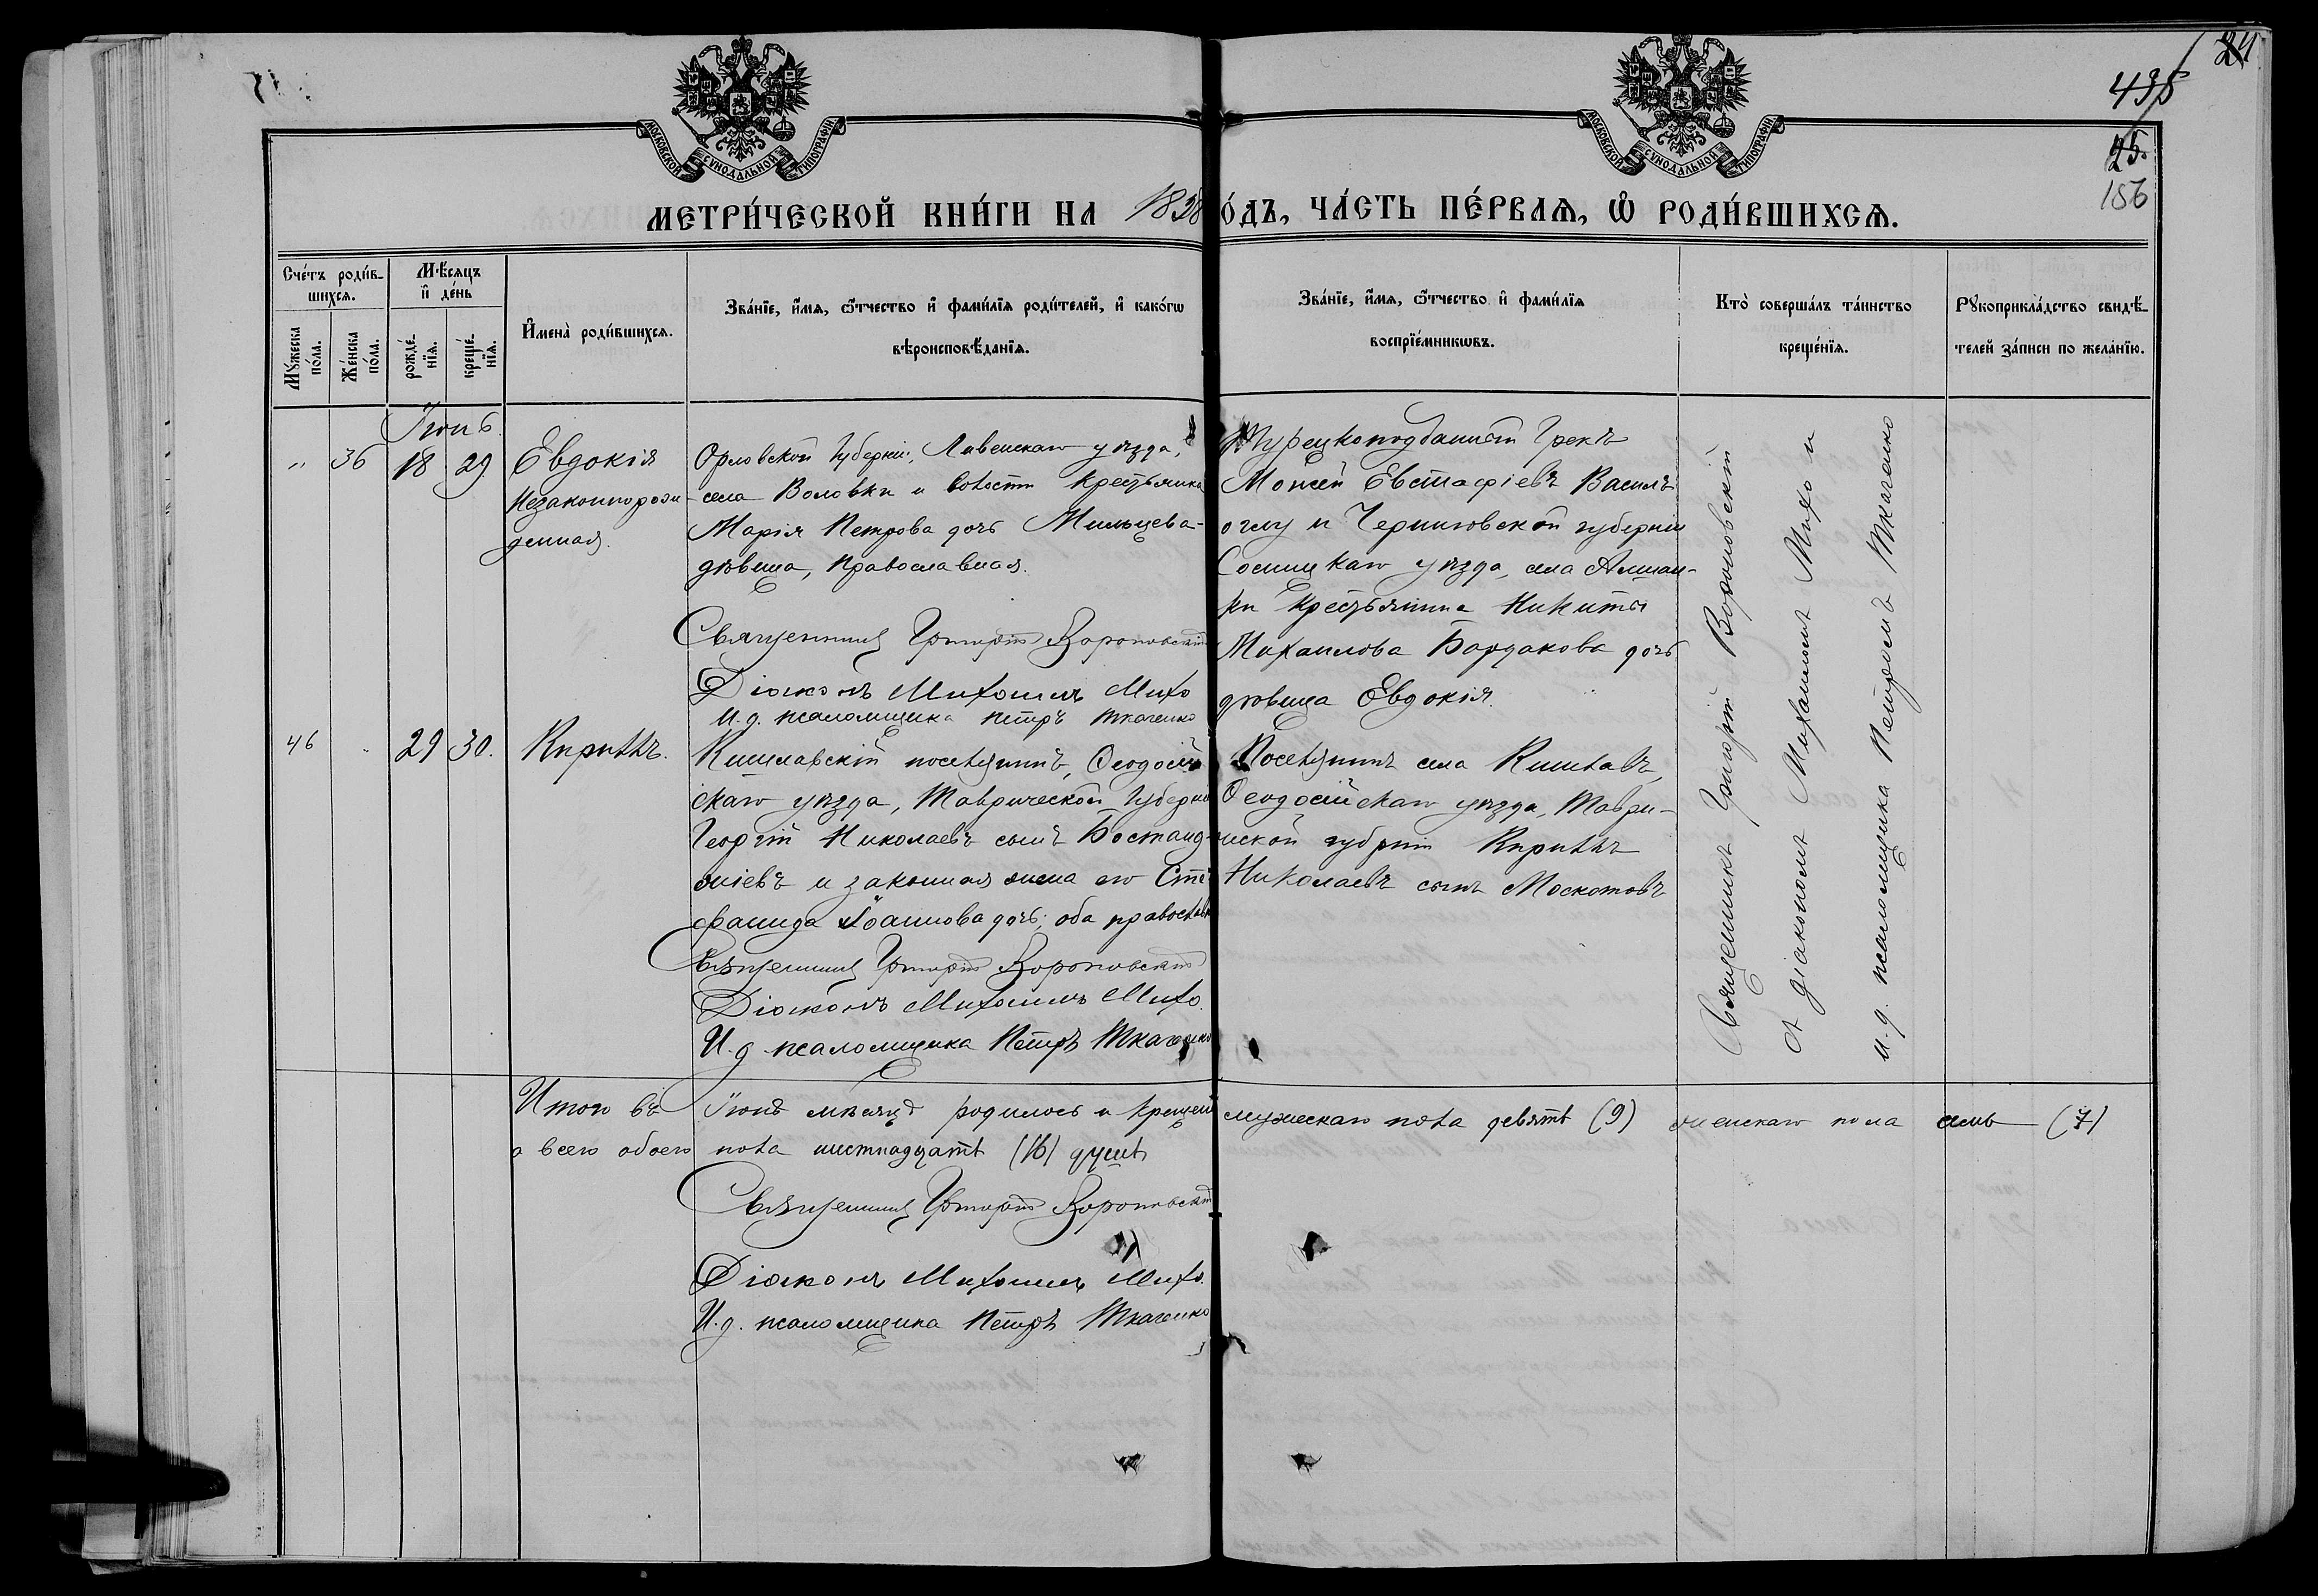 МОСКОВСКОЙ СѴНОДАЛЬНОЙ ТИПОГРАФІИ.
МОСКОВСКОЙ СѴНОДАЛЬНОЙ ТИПОГРАФІИ.
24
495
25.
156
МЕТРИ́ЧЕСКОЙ КНИ́ГИ НА 1898
О́ДЪ, ЧА́СТЬ ПЕ́РВАѦ, Ѿ РОДИ́ВШИХСѦ.
Сче́тъ роди́в-
шихсѧ.
Мꙋ́жеска по́ла.
Же́нска по́ла.
Мѣ́сѧцъ
и҆ де́нь
рожде́-
нїѧ.
креще́-
нїѧ.
И҆мена̀ роди́вшихсѧ.
Зва́нїе, и҆́мѧ, ѻ҆́тчество и҆ фами́лїѧ роди́телей, и҆ како́гѡ
вѣроисповѣ́данїѧ.
Зва́нїе, и҆́мѧ, ѻ҆́тчество и҆ фами́лїѧ
воспрїе́мникѡвъ.
Кто̀ соверша́лъ та́инство
креще́нїѧ.
Рꙋкоприкла́дство свидѣ́-
телей за́писи по жела́нїю.
Іюнь
" 36 18 29. Евдокія
незаконнорож
денная.
Орловской губерніи, Ливенскаго уѣзда,
села Воловки и волости крестьянка
Марія Петрова дочь Мильцева-
дѣвица, православная.
Священникъ Григорій Вороновскій
Діаконъ Михаилъ Михо
И. д. псаломщика Петръ Ткаченко
Турецкоподданный Грекъ
Моисей Евстафіевъ Василь
оглу и Черниговской губерніи
Сосницкаго уѣзда, села
ки крестьянина Никиты
Михаилова Бардакова дочь
дѣвица Евдокія.
46 " 29 30. Кириллъ.
Кишлавскій поселянинъ, Ѳеодосій
скаго уѣзда, Таврической губерніи
Георгій Николаевъ сынъ Бостанд-
жіевъ и законная жена его Сте
фанида Іоаннова дочь; оба православ
Священникъ Григорій Вороновскій
Діаконъ Михаилъ Михо.
И. д. псаломщика Петръ Ткаченко
Поселянинъ села Кишлавъ,
Ѳеодосійскаго уѣзда, Таври-
ческой губерніи Кириллъ
Николаевъ сынъ Москотовъ
Священникъ Григорій Вороновскій
съ діакономъ Михаиломъ Михо и
и. д. псаломщика Петромъ Ткаченко
Итого въ Іюнѣ мѣсяцѣ родилось и крещен мужескаго пола девять (9) женскаго пола семь (7)
а всего обоего пола шестнадцать (16) душъ
Священникъ Григорій Вороновскій
Діаконъ Михаилъ Михо.
И. д. псаломщика Петръ Ткаченко